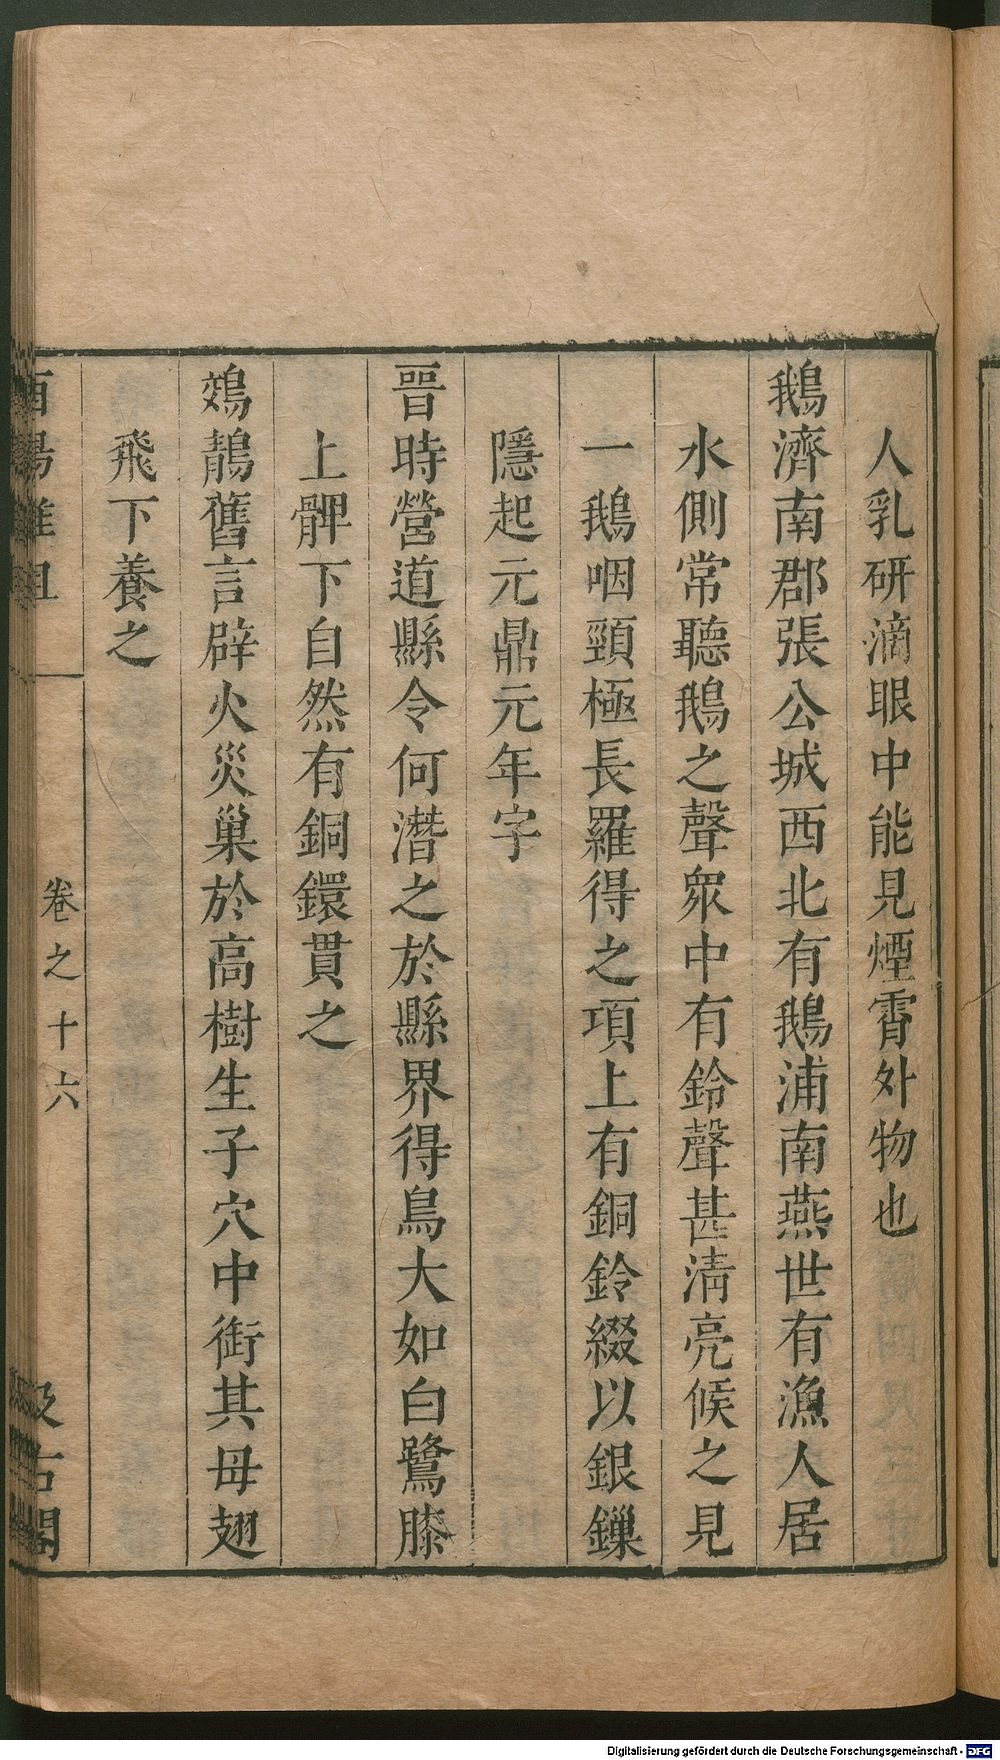 人乳研滴眼中能見煙霄外物也
鵝濟南郡張公城西北有鵝浦南燕世有漁人居
水側常聽鵝之聲衆中有鈴聲甚淸亮候之見
一鵝咽頸極長羅得之項上有銅鈴綴以銀鏁
隱起元鼎元年字
晉時營道縣令何潛之於縣界得鳥大如白鷺膝
上髀下自然有銅鐶貫之
鴗鶄舊言辟火災巢於高樹生子穴中銜其母翅
飛下養之
酉陽雜俎
卷之十六
汲古閣
Digitalisierung gefördert durch die Deutsche Forschungsgemeinschaft - DFG